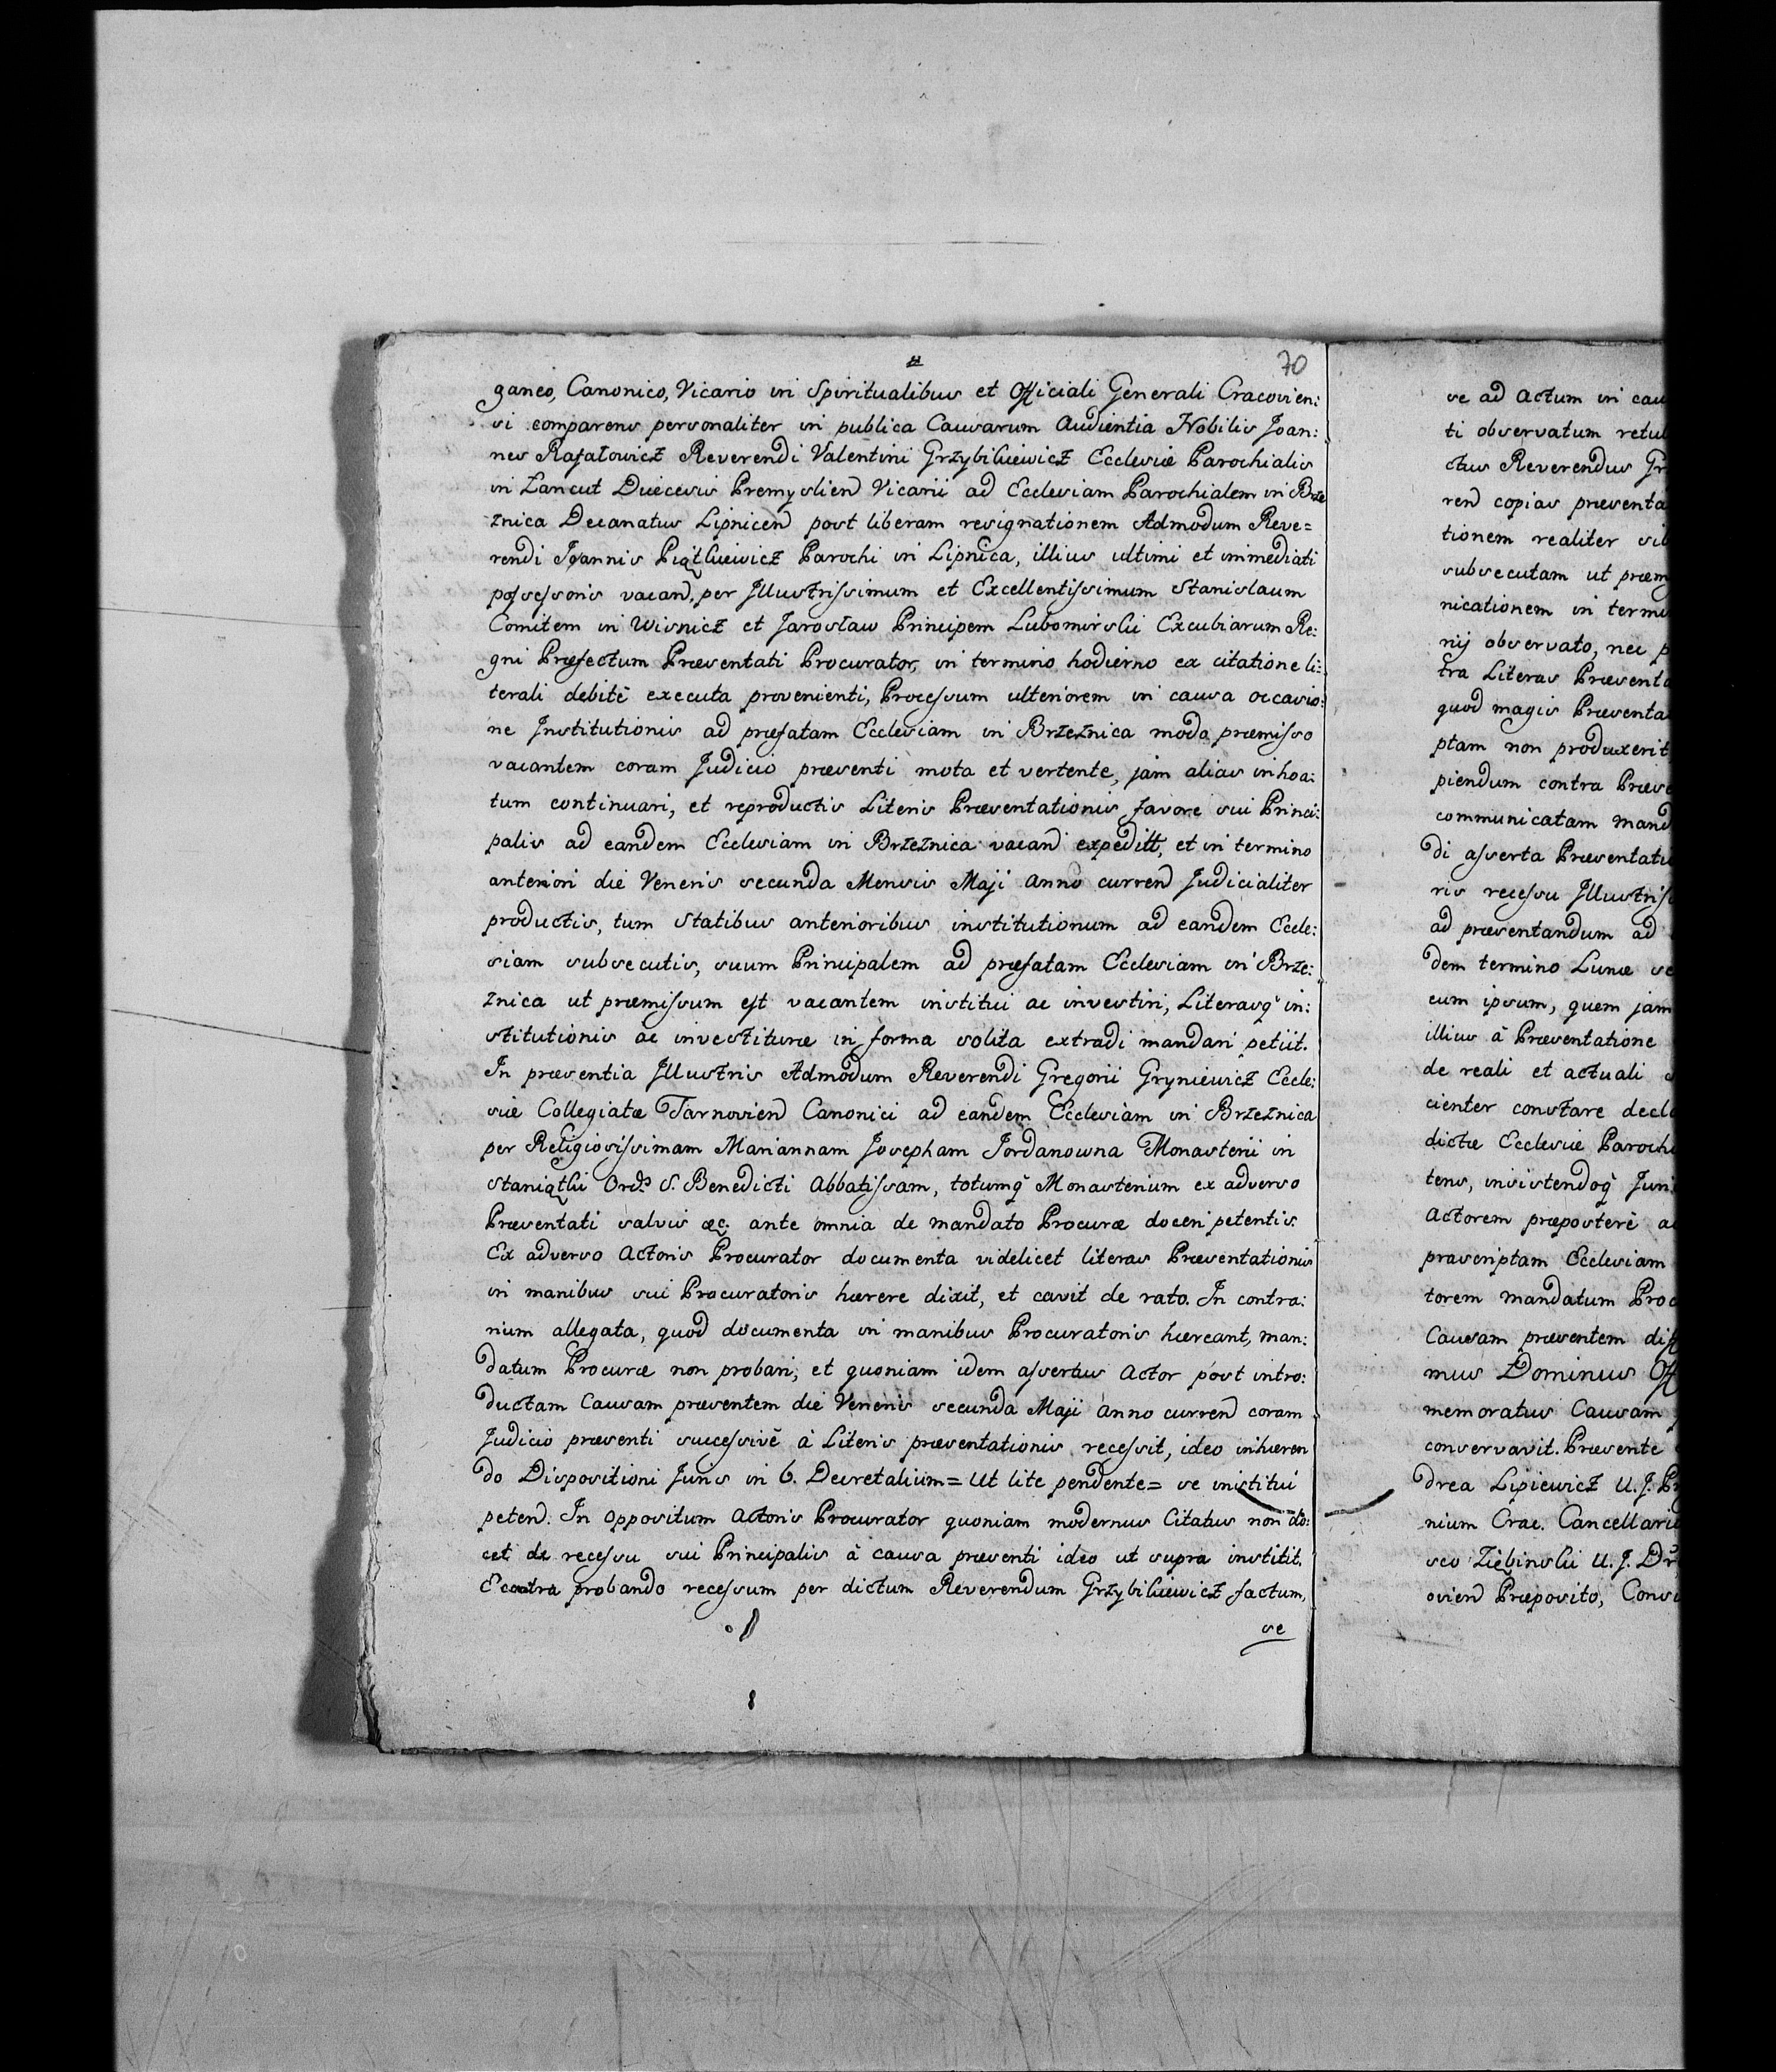 70
ganeo, Canonico, Vicario in Spiritualibus et Officiali Generali Cracovien:
si comparens personaliter in publica Causarum Audientia Nobilis Joan:
nes Rafałowicz Reverendi Valentini Grzybikiewicz Ecclesiæ Parochialis
in Łancut Diæcesis Premyslien̄ Vicarii ad Ecclesiam Parochialem in Brze
znica Decanatus Lipnicen̄ post liberam resignationem Admodum Reve=
rendi Joannis Piątkiewicz Parochi in Lipnica, illius ultimi et immediati
possessoris vacan̄, per Jllustrissimum et Excellentissimum Stanislaum
Comitem in Wisnicz et Jarosław Principem Lubomirski Excubiarum Re:
gni Præfectum Præsentati Procurator, in termino hodierno ex citatione li:
terali debitè executa provenienti, Processum ulteriorem in causa occasio:
ne Institutionis ad præfatam Ecclesiam in Brzeznica modo præmisso
vacantem coram Judicio præsenti mota et vertente, jam alias inhoa:
tum continuari, et reproductis Literis Præsentationis favore sui Princi:
palis ad eandem Ecclesiam in Brzeznica vacan̄ expeditt, et in termino
anteriori die Veneris secunda Mensis Maji Anno curren̄ Judicialiter
productis, tum Statibus anterioribus institutionum ad eandem Eccle:
siam subsecutis, suum Principalem ad præfatam Ecclesiam in Brze:
znica ut præmissum est vacantem institui ac investiri, Literasq̀ in:
stitutionis ac investituræ in forma solita extradi mandari petiit.
In præsentia Jllustris Admodum Reverendi Gregorii Gryniewicz Eccle:
siæ Collegiatæ Tarnovien̄ Canonici ad eandem Ecclesiam in Brzeznica
per Religiosissimam Mariannam Josepham Jordanowna Monasterii in
Staniątki Ord̄s S. Benedicti Abbatissam, totumq̀ Monasterium ex adverso
Præsentati salvis æc. ante omnia de mandato Procuræ doceri petentis.
Ex adverso Actoris Procurator documenta videlicet literas Præsentationis
in manibus sui Procuratoris hærere dixit, et cavit de rato. In contra:
rium allegata, quod documenta in manibus Procuratoris hæreant, man:
datum Procuræ non probari, et quoniam idem assertus Actor post intro:
ductam Causam præsentem die Veneris secunda Maji anno curren̄ coram
Judicio præsenti successivè à Literis præsentationis recessit, ideo inhæren
do Dispositioni Juris in 6. Decretalium= Ut lite pendente= se institui
peten̄. In oppositum Actoris Procurator quoniam modernus Citatus non do:
cet de recessu sui Principalis à causa præsenti ideo ut supra institit.
E contra probando recessum per dictum Reverendum Grzybikiewicz factum,
se
se ad Actum in cau
ti observatum retul
ctus Reverendus Gr
ren̄ copias præsenta
tionem realiter sib
subsecutam ut præm
nicationem in termi
rij observato, nec p
tra Literas Præsenta
quod magis Præsenta
ptam non produxerit
piendum contra Præse
communicatam mand
di asserta Præsentati
ris recessu Jllustriss
ad præsentandum ad
dem termino Lunæ se
cum ipsum, quem jam
illius à Præsentatione
de reali et actuali
cienter constare decla
dictæ Ecclesiæ Parochi
tens, insistendoq̀ Juri
Actorem præposterè a
præscriptam Ecclesiam
torem mandatum Proc
Causam præsentem dif
mus Dominus Off
memoratus Causam
conservavit. Præsente
drea Lipiewicz U. J. Pr
nium Crac. Cancellari
sco Ziębinski U. J. Dr
ovien̄ Præposito, Cons